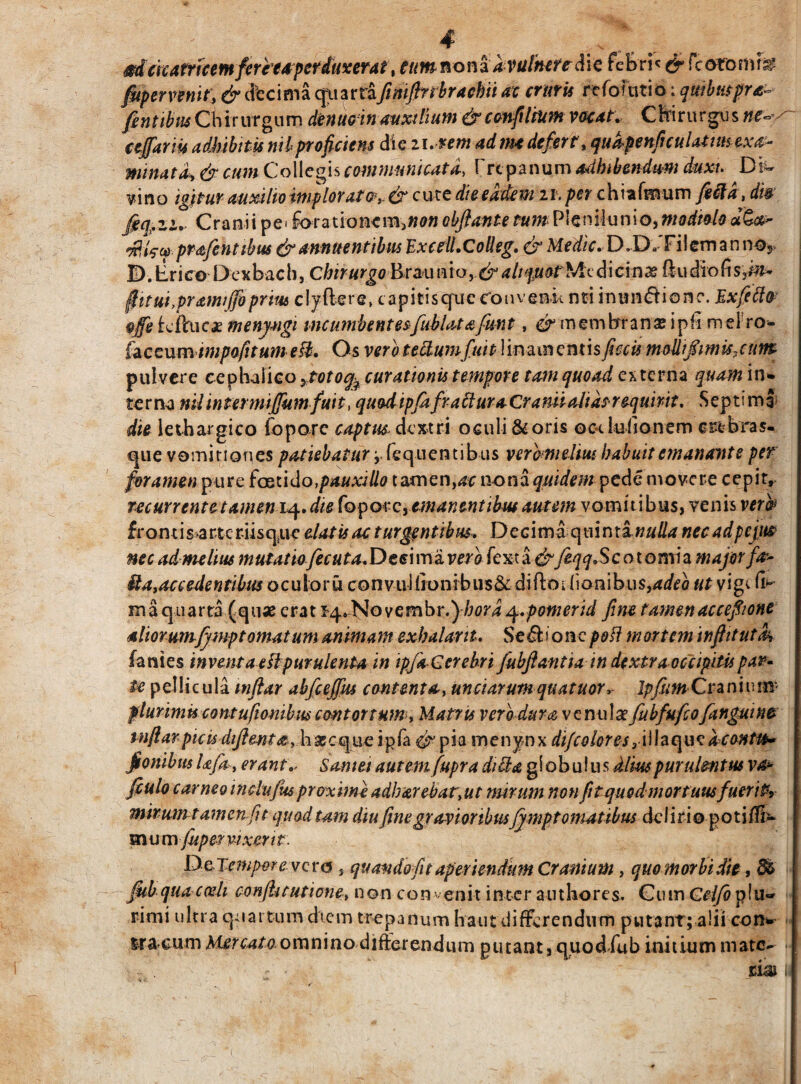 4
ad cicatricem fere ea perduxerat, cum nona à vulnere die febris & scotomia
supervenit, & decima quarta sinistri brachii ac cruris resolutio: quibus præ-
sentibus Chirurgum denuo in auxilium & consilium vocat. Chirurgus ne-
cessariis adhibitis nil proficiens die 21. rem ad me defert, quâ pensiculatius exa-
minatâ, & cum Collegis communicatâ, Trepanum adhibendum duxi. Di-
vino igitur auxilio implorato, & cute die eâdem 21. per chiasmum sectâ, die
seq. 22. Cranii perforationem, non obstante tum Plenilunio, modiolo
præsentibus & annuentibus Excell. Colleg. & Medic. D. D. Filemanno,
D. Erico Dexbach, Chirurgo Braunio, & aliquot Medicinæ studiosis, in-
stitui, præmisso prius clystere, capitisque convenienti inunctione. Exsecto
osse testucæ menyngi incumbentes sublatæ sunt, & membranæ ipsi mel ro-
saceum impositum est. Os vero tectum fuit linamentis siccis mollissimis, cum
pulvere cephalico, totoq; curationis tempore tam quoad externa quam in-
terna nil intermissum fuit, quod ipsa fractura Cranii aliàs requirit. Septimâ
die lethargico sopore captus dextri oculi & oris occlusionem crebras-
que vomitiones patiebatur; sequentibus verò melius habuit emanante per
foramen pure fœtido, pauxillo tamen, ac nona quidem pedé movere cepit,
recurrente tamen 14. die sopore, emanentibus autem vomitibus, venis verò
frontis arteriisque elatis ac turgentibus. Decimâ quintâ nulla nec ad pejus
nec ad melius mutatio secuta. Decimâ verò sextâ & seqq. Scotomia major fa-
cta, accedentibus oculorũ convulsionibus & distorsionibus, adeò ut vigesi-
mâ quartâ (quæ erat 14. Novembr.) horâ 4. pomerid sine tamen accessione
aliorum symptomatum animam exhalarit. Sectione post mortem institutâ,
sanies inventa est purulenta in ipsa Cerebri substantia in dextra occipitis par-
te pelliculâ instar abscessus contenta, unciarum quatuor. Ipsum Cranium
plurimis contusionibus contortum, Matris verò duræ venulæ subfusco sanguine
instar picis distentæ, hæcque ipsa & pia menynx discolores, illaque à contu-
sionibus læsa, erant. Saniei autem supra dictæ globulus alius purulentus va-
sculo carneo inclusus proxime adhærebat, ut mirum non sit quod mortuus fuerit,
mirum tamen sit quod tam diu sine gravioribus symptomatibus delirio potissi-
mum supervixerit.
De Tempore vero, quando sit aperiendum Cranium, quo morbi die, &
sub qua cœli constitutione, non convenit inter authores. Cum Celso plu-
rimi ultra quartum diem trepanum haut differendum putant; alii con-
tra cum Mercato omnino differendum putant, quod sub initium mate-
riæ